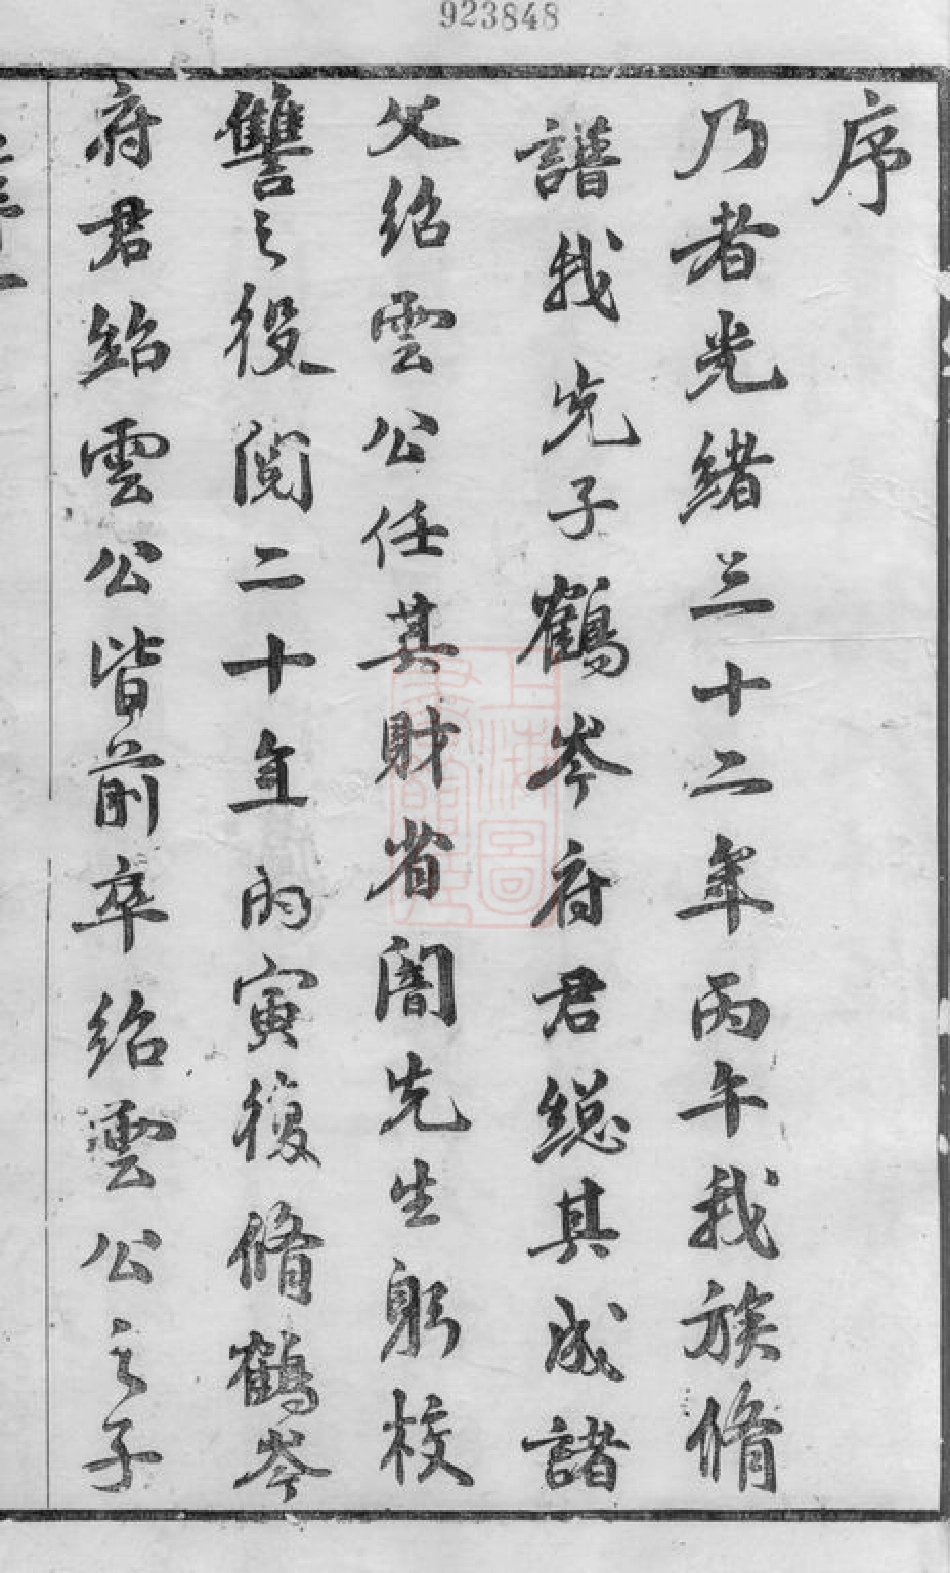 923848
序
乃者光緒三十二年丙午我族脩
譜我先子鶴岑府君總其成諸
父紹雲公任其財省闇先生躬校
讐之役閱二十年丙寅復脩鶴岑
府君紹雲公皆前卒紹雲公之子
上海圖書館藏